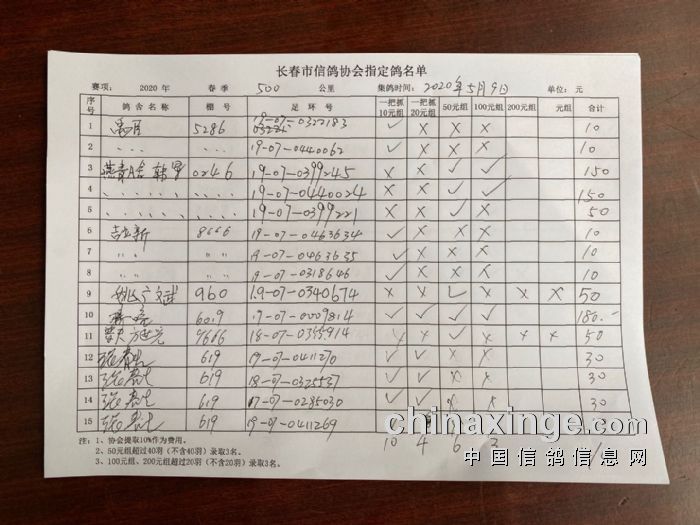 长春市信鸽协会指定鸽名单
赛项: 2020 年 春 季 500 公里 集鸽时间: 2020年5月9日 单位: 元
序号 鸽舍名称 棚号 足环号 一把抓10元组 一把抓20元组 50元组 100元组 200元组 元组 合计
1 5286 19-07-0322183 ✓ × × × 10
2 〃 〃 19-07-0440062 ✓ × × × 10
3 0246 19-07-0399245 × × ✓ ✓ 150
4 19-07-0440024 × × ✓ ✓ 150
5 19-07-0399221 × × ✓ × 50
6 8666 19-07-0463634 ✓ × × × 10
7 〃 〃 19-07-0463635 ✓ × × × 10
8 〃 〃 19-07-0318646 ✓ × × × 10
9 姚广斌 960 19-07-0340674 × × ✓ × × × 50
10 6019 19-07-0009814 ✓ ✓ ✓ ✓ 180.-
11 9666 18-07-0355914 × × ✓ × × × 50
12 619 19-07-0411270 ✓ ✓ × × 30
13 619 18-07-0325537 ✓ ✓ × × 30
14 619 17-07-0285030 ✓ ✓ × × 30
15 619 19-07-0411269
10 4 6
注: 1、协会提取10%作为费用。
2、50元组超过40羽(不含40羽)录取3名。
3、100元组、200元组超过20羽(不含20羽)录取3名。
chinaxinge.com
中国信鸽信息网